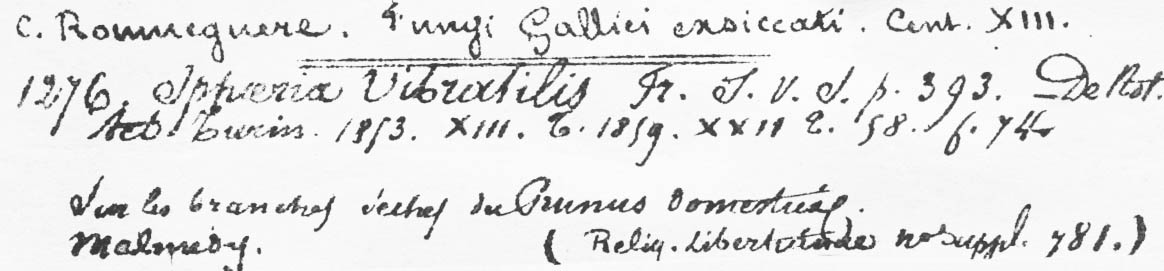 C. Roumeguere. Fungi Gallici exsiccati. Cent. XIII.
1276. Sphæria Vibratilis Fr. S. V. S. p. 393. De Not.
Act Turin. 1853. XIII. T. 1859. XXII t. 58. f. 74
Sur les branches sèches du Prunus Domestica.
Malmedy. (Reliq. Libert no suppl. 781.)